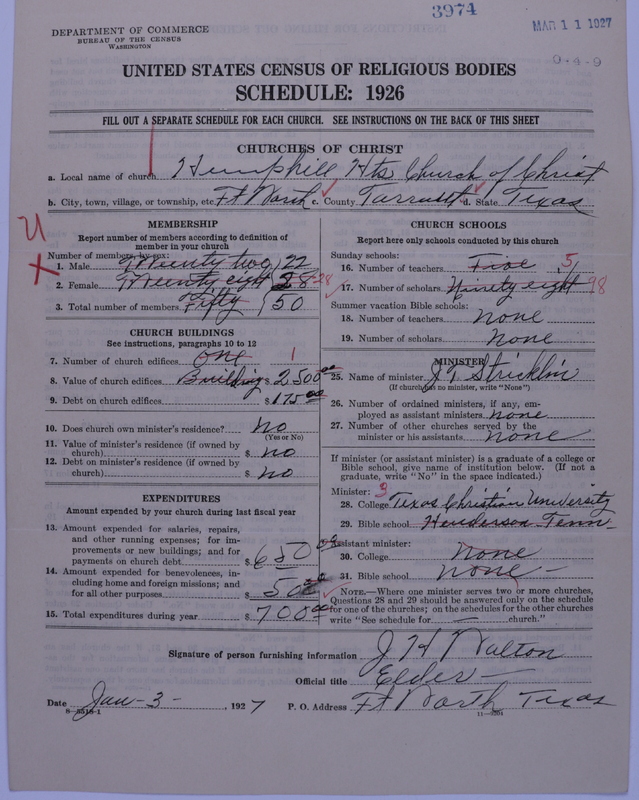 3974
MAR 11 1927
DEPARTMENT OF COMMERCE
BUREAU OF THE CENSUS
WASHINGTON
0-4-9
UNITED STATES CENSUS OF RELIGIOUS BODIES
SCHEDULE: 1926
FILL OUT A SEPARATE SCHEDULE FOR EACH CHURCH. SEE INSTRUCTIONS ON THE BACK OF THIS SHEET
CHURCHES OF CHRIST
a. Local name of church Hemphill Hts Church of Christ
b. City, town, village, or township, etc Ft Worth c. County Tarrant d. State Texas
MEMBERSHIP
Report number of members according to definition of
member in your church
Number of members, by sex:
1. Male Twenty two 22
2. Female Twenty eight 28 28
3. Total number of members Fifty 50
CHURCH BUILDINGS
See instructions, paragraphs 10 to 12
7. Number of church edifices one 1
8. Value of church edifices Building $ 2500.00
9. Debt on church edifices $ 175.00
10. Does church own minister's residence? No
(Yes or No)
11. Value of minister's residence (if owned by
church) $ No
12. Debt on minister's residence (if owned by
church) $ No
EXPENDITURES
Amount expended by your church during last fiscal year
13. Amount expended for salaries, repairs,
and other running expenses; for im-
provements or new buildings; and for
payments on church debt $ 650.00
14. Amount expended for benevolences, in-
cluding home and foreign missions; and
for all other purposes $ 50.00
15. Total expenditures during year $ 700.00
CHURCH SCHOOLS
Report here only schools conducted by this church
Sunday schools:
16. Number of teachers Five 5
17. Number of scholars Ninety eight 98
Summer vacation Bible schools:
18. Number of teachers none
19. Number of scholars none
MINISTER
25. Name of minister J. T. Stricklin
(If church has no minister, write "None")
26. Number of ordained ministers, if any, em-
ployed as assistant ministers none
27. Number of other churches served by the
minister or his assistants none
If minister (or assistant minister) is a graduate of a college or
Bible school, give name of institution below. (If not a
graduate, write "No" in the space indicated.)
Minister: 3
28. College Texas Christian University
29. Bible school Henderson Tenn
Assistant minister:
30. College None
31. Bible school none
NOTE.—Where one minister serves two or more churches,
Questions 28 and 29 should be answered only on the schedule
for one of the churches; on the schedules for the other churches
write "See schedule for — church."
Signature of person furnishing information J H Walton
Official title Elder
Date Jan - 3 - , 1927 P. O. Address Ft Worth Texas
8-5518-1